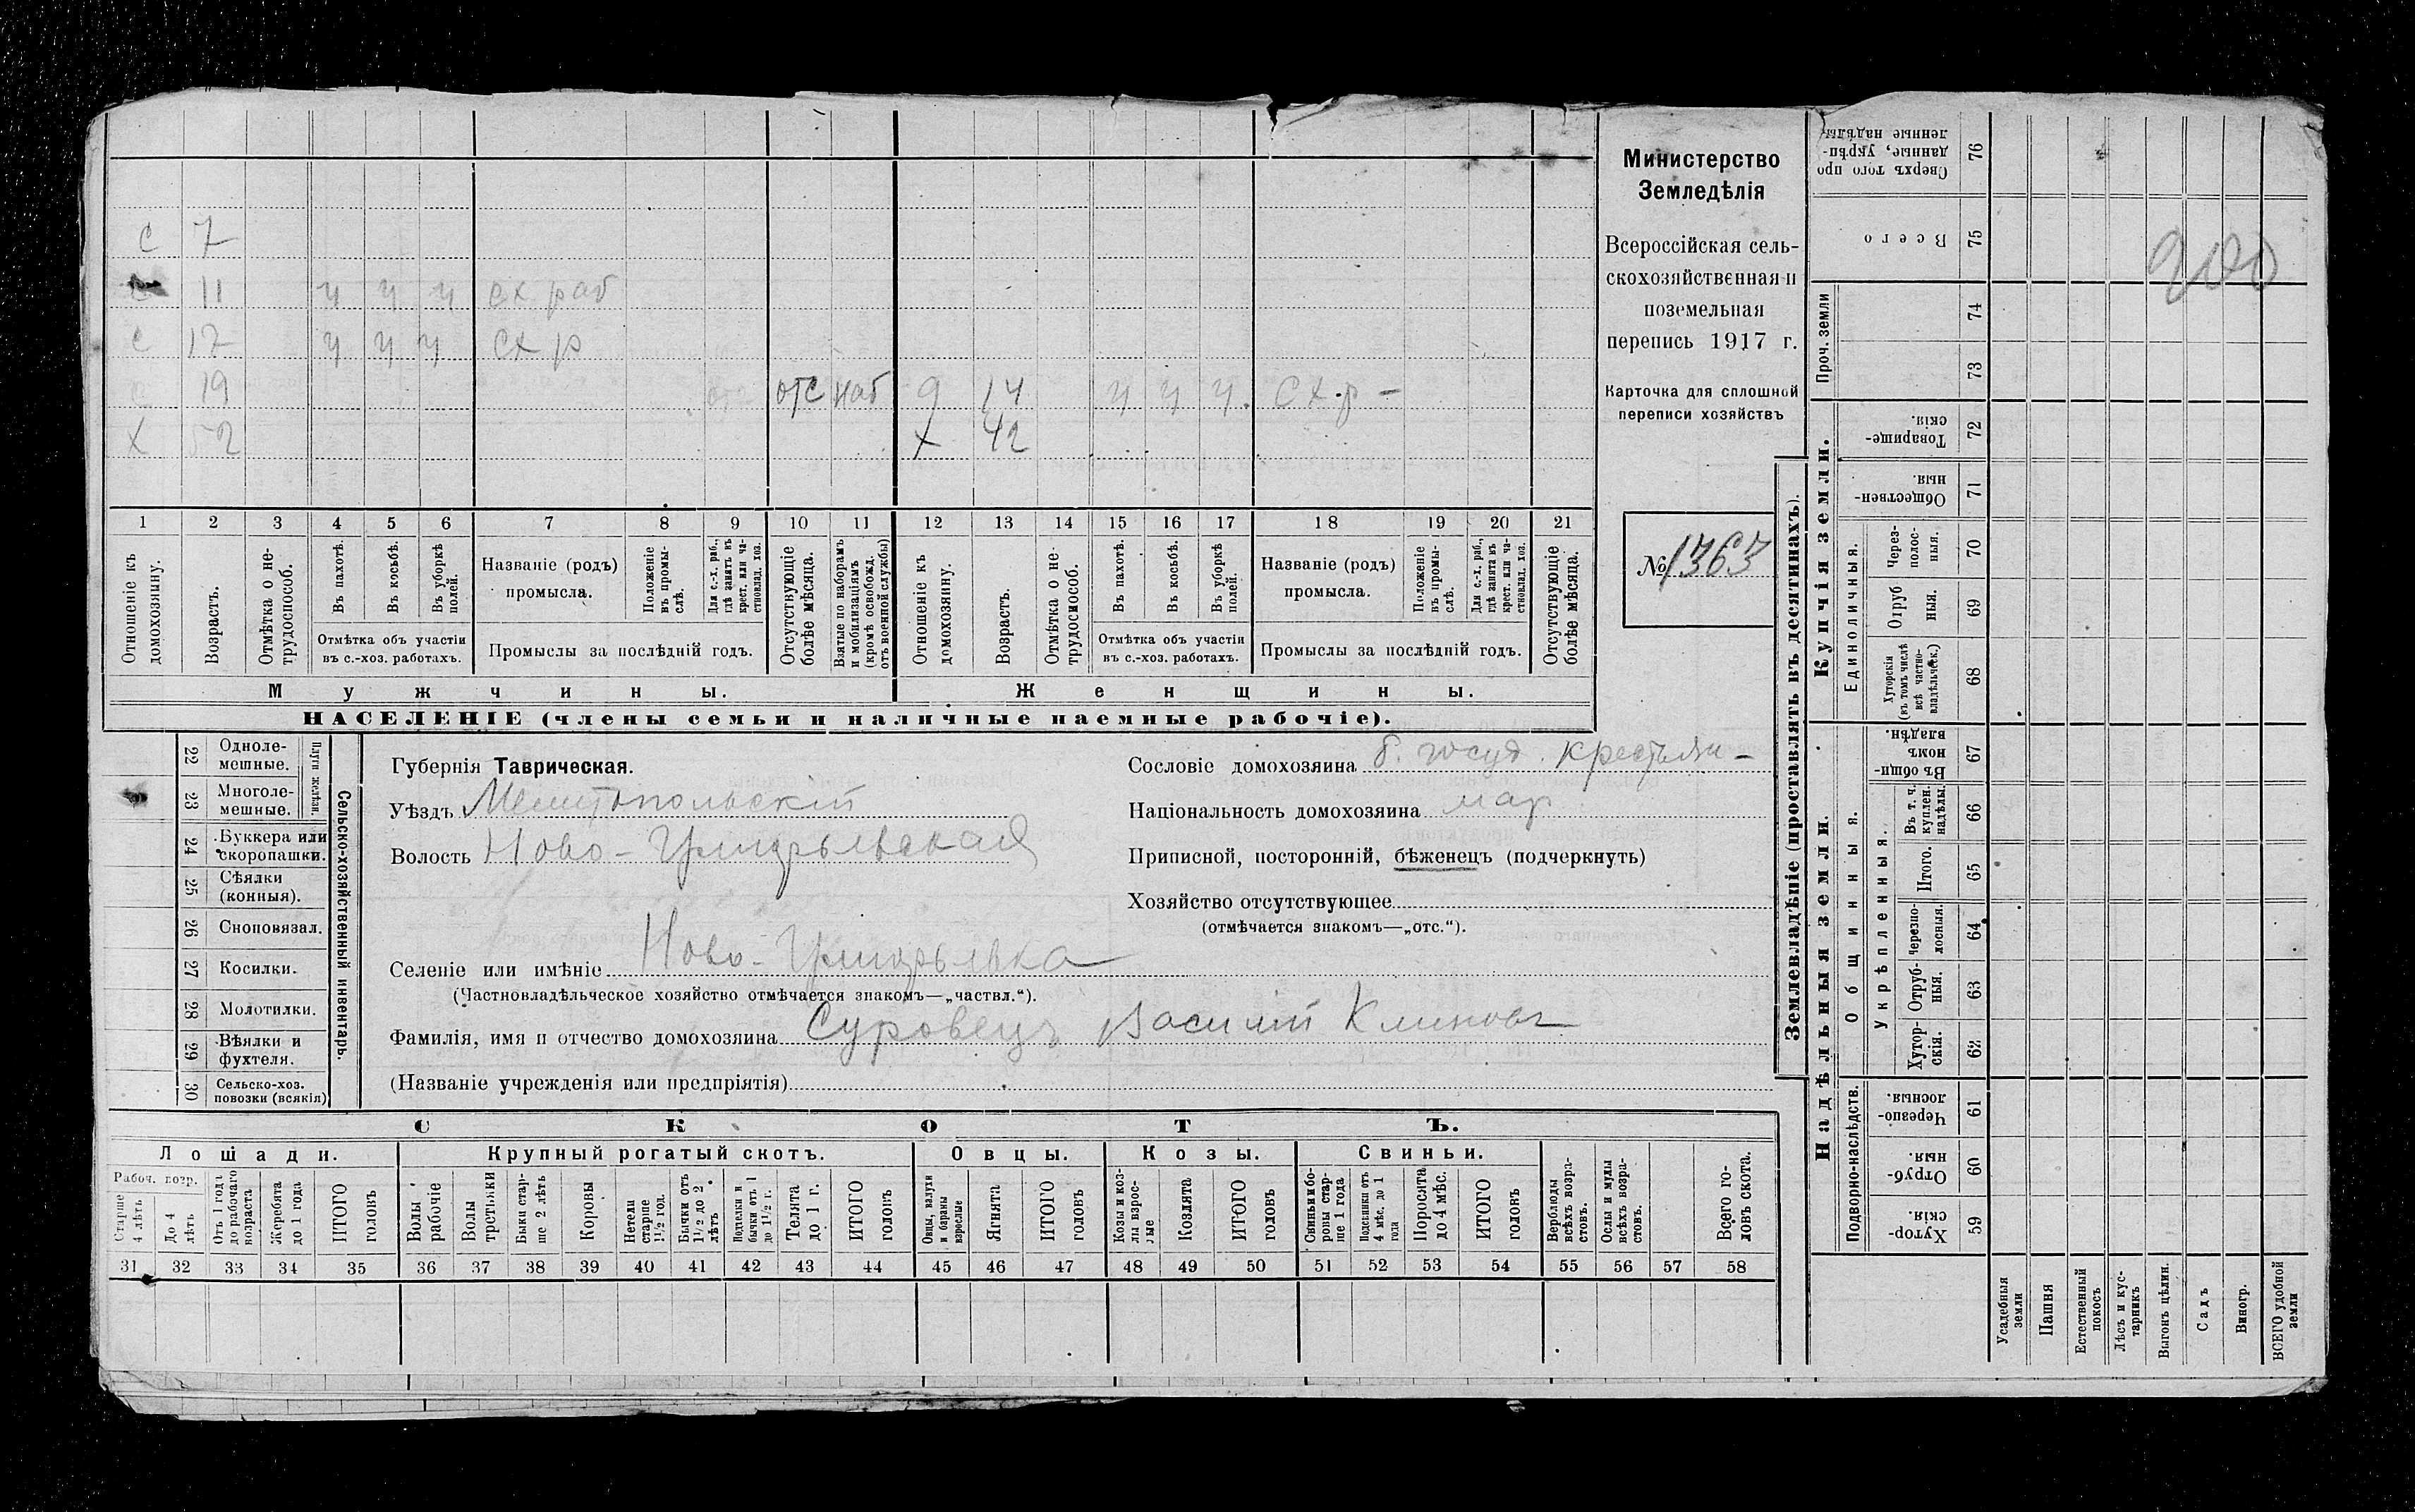 с 7
с 11 ч ч ч сх раб
с 17 ч ч ч сх р
с 19 отс отс наб д 14 ч ч ч. сх.р –
х 52 х 42
1 2 3 4 5 6 7 8 9 10 11 12 13 14 15 16 17 18 19 20 21
Отношеніе къ домохозяину.
Возрастъ.
Отмѣтка о не-трудоспособ.
Въ пахотѣ.
Въ косьбѣ.
Въ уборкѣ полей.
Отмѣтка объ участіи
въ с.-хоз. работахъ.
Названіе (родъ)
промысла.
Положеніе въ промы-слѣ.
Для с.-х. раб., гдѣ занятъ въ крест. или ча-стновлад. хоз.
Промыслы за послѣдній годъ.
Отсутствующіе болѣе мѣсяца.
Взятые по наборамъ и мобилизаціямъ (кромѣ освобожд. отъ военной службы)
Отношеніе къ домохозяину.
Возрастъ.
Отмѣтка о не-трудоспособ.
Въ пахотѣ.
Въ косьбѣ.
Въ уборкѣ полей.
Отмѣтка объ участіи
въ с.-хоз. работахъ.
Названіе (родъ)
промысла.
Положеніе въ промы-слѣ.
Для с.-х. раб., гдѣ занята въ крест. или ча-стновлад. хоз.
Промыслы за послѣдній годъ.
Отсутствующіе болѣе мѣсяца.
Мужчины.
Женщины.
НАСЕЛЕНІЕ (члены семьи и наличные наемные рабочіе).
Министерство
Земледѣлія
Всероссійская сель-
скохозяйственная и
поземельная
перепись 1917 г.
Карточка для сплошной
переписи хозяйствъ
№ 1363
22 Одноле-мешные.
23 Многоле-мешные.
Плуги желѣзн.
24 Буккера или скоропашки.
25 Сѣялки (конныя).
26 Сноповязал.
27 Косилки.
28 Молотилки.
29 Вѣялки и фухтеля.
30 Сельско-хоз. повозки (всякія)
Сельско-хозяйственный инвентарь.
Губернія Таврическая.
Уѣздъ Мелитопольскій
Волость Ново-Григорьевская
Селеніе или имѣніе Ново-Григорьевка
(Частновладѣльческое хозяйство отмѣчается знакомъ—„частвл.“).
Фамилія, имя и отчество домохозяина Суровецъ Василій Климовъ
(Названіе учрежденія или предпріятія)
Сословіе домохозяина б. госуд. крестьян-
Національность домохозяина мар
Приписной, посторонній, бѣженецъ (подчеркнуть)
Хозяйство отсутствующее
(отмѣчается знакомъ—„отс.“).
СКОТЪ.
Лошади.
Крупный рогатый скотъ.
Овцы.
Козы.
Свиньи.
Рабоч. возр.
Старше 4 лѣтъ
До 4 лѣтъ
Отъ 1 года до рабочаго возраста
Жеребята до 1 года
ИТОГО головъ
Волы рабочіе
Волы третьяки
Быки стар-ше 2 лѣтъ
Коровы
Нетели старше 1½ год.
Бычки отъ 1½ до 2 лѣтъ
Подтелки и бычки отъ 1 до 1½ г.
Телята до 1 г.
ИТОГО головъ
Овцы, валухи и бараны взрослые
Ягнята
ИТОГО головъ
Козы и коз-лы взрос-лые
Козлята
ИТОГО головъ
Свиньи и бо-ровы стар-ше 1 года
Подсвинки отъ 4 мѣс. до 1 года
Поросята до 4 мѣс.
ИТОГО головъ
Верблюды всѣхъ возра-стовъ.
Ослы и мулы всѣхъ возра-стовъ.
Всего го-ловъ скота.
31 32 33 34 35 36 37 38 39 40 41 42 43 44 45 46 47 48 49 50 51 52 53 54 55 56 57 58
Землевладѣніе (проставлять въ десятинахъ).
Купчія земли.
Надѣльныя земли.
Сверхъ того про-данные, укрѣп-ленные надѣлы. 76
Всего 75
900
Проч. земли
74
73
Товарище-скія. 72
Обществен-ныя. 71
Единоличныя.
Через-полос-ныя. 70
Отруб-ныя. 69
Хуторскія (въ томъ числѣ всѣ частно-владѣльческ.) 68
Общинныя.
Въ общин-номъ владѣн. 67
Укрѣпленныя.
Въ т. ч. куплен. надѣлы. 66
Итого. 65
Черезпо-лосныя. 64
Отруб-ныя. 63
Хутор-скія. 62
Подворно-наслѣдств.
Черезпо-лосныя. 61
Отруб-ныя. 60
Хутор-скія. 59
Усадебныя земли
Пашня
Естественный покосъ
Лѣсъ и кус-тарникъ
Выгонъ цѣлин.
Садъ
Виногр.
ВСЕГО удобной земли